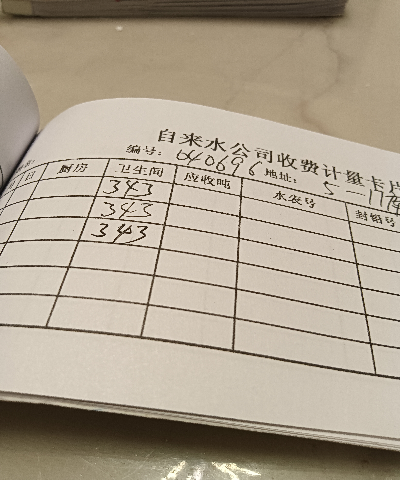 自来水公司收费计量卡片
编号: 040696 地址: 5-117
日 厨房 卫生间 应收吨 水表号 封铅号
343
343
343